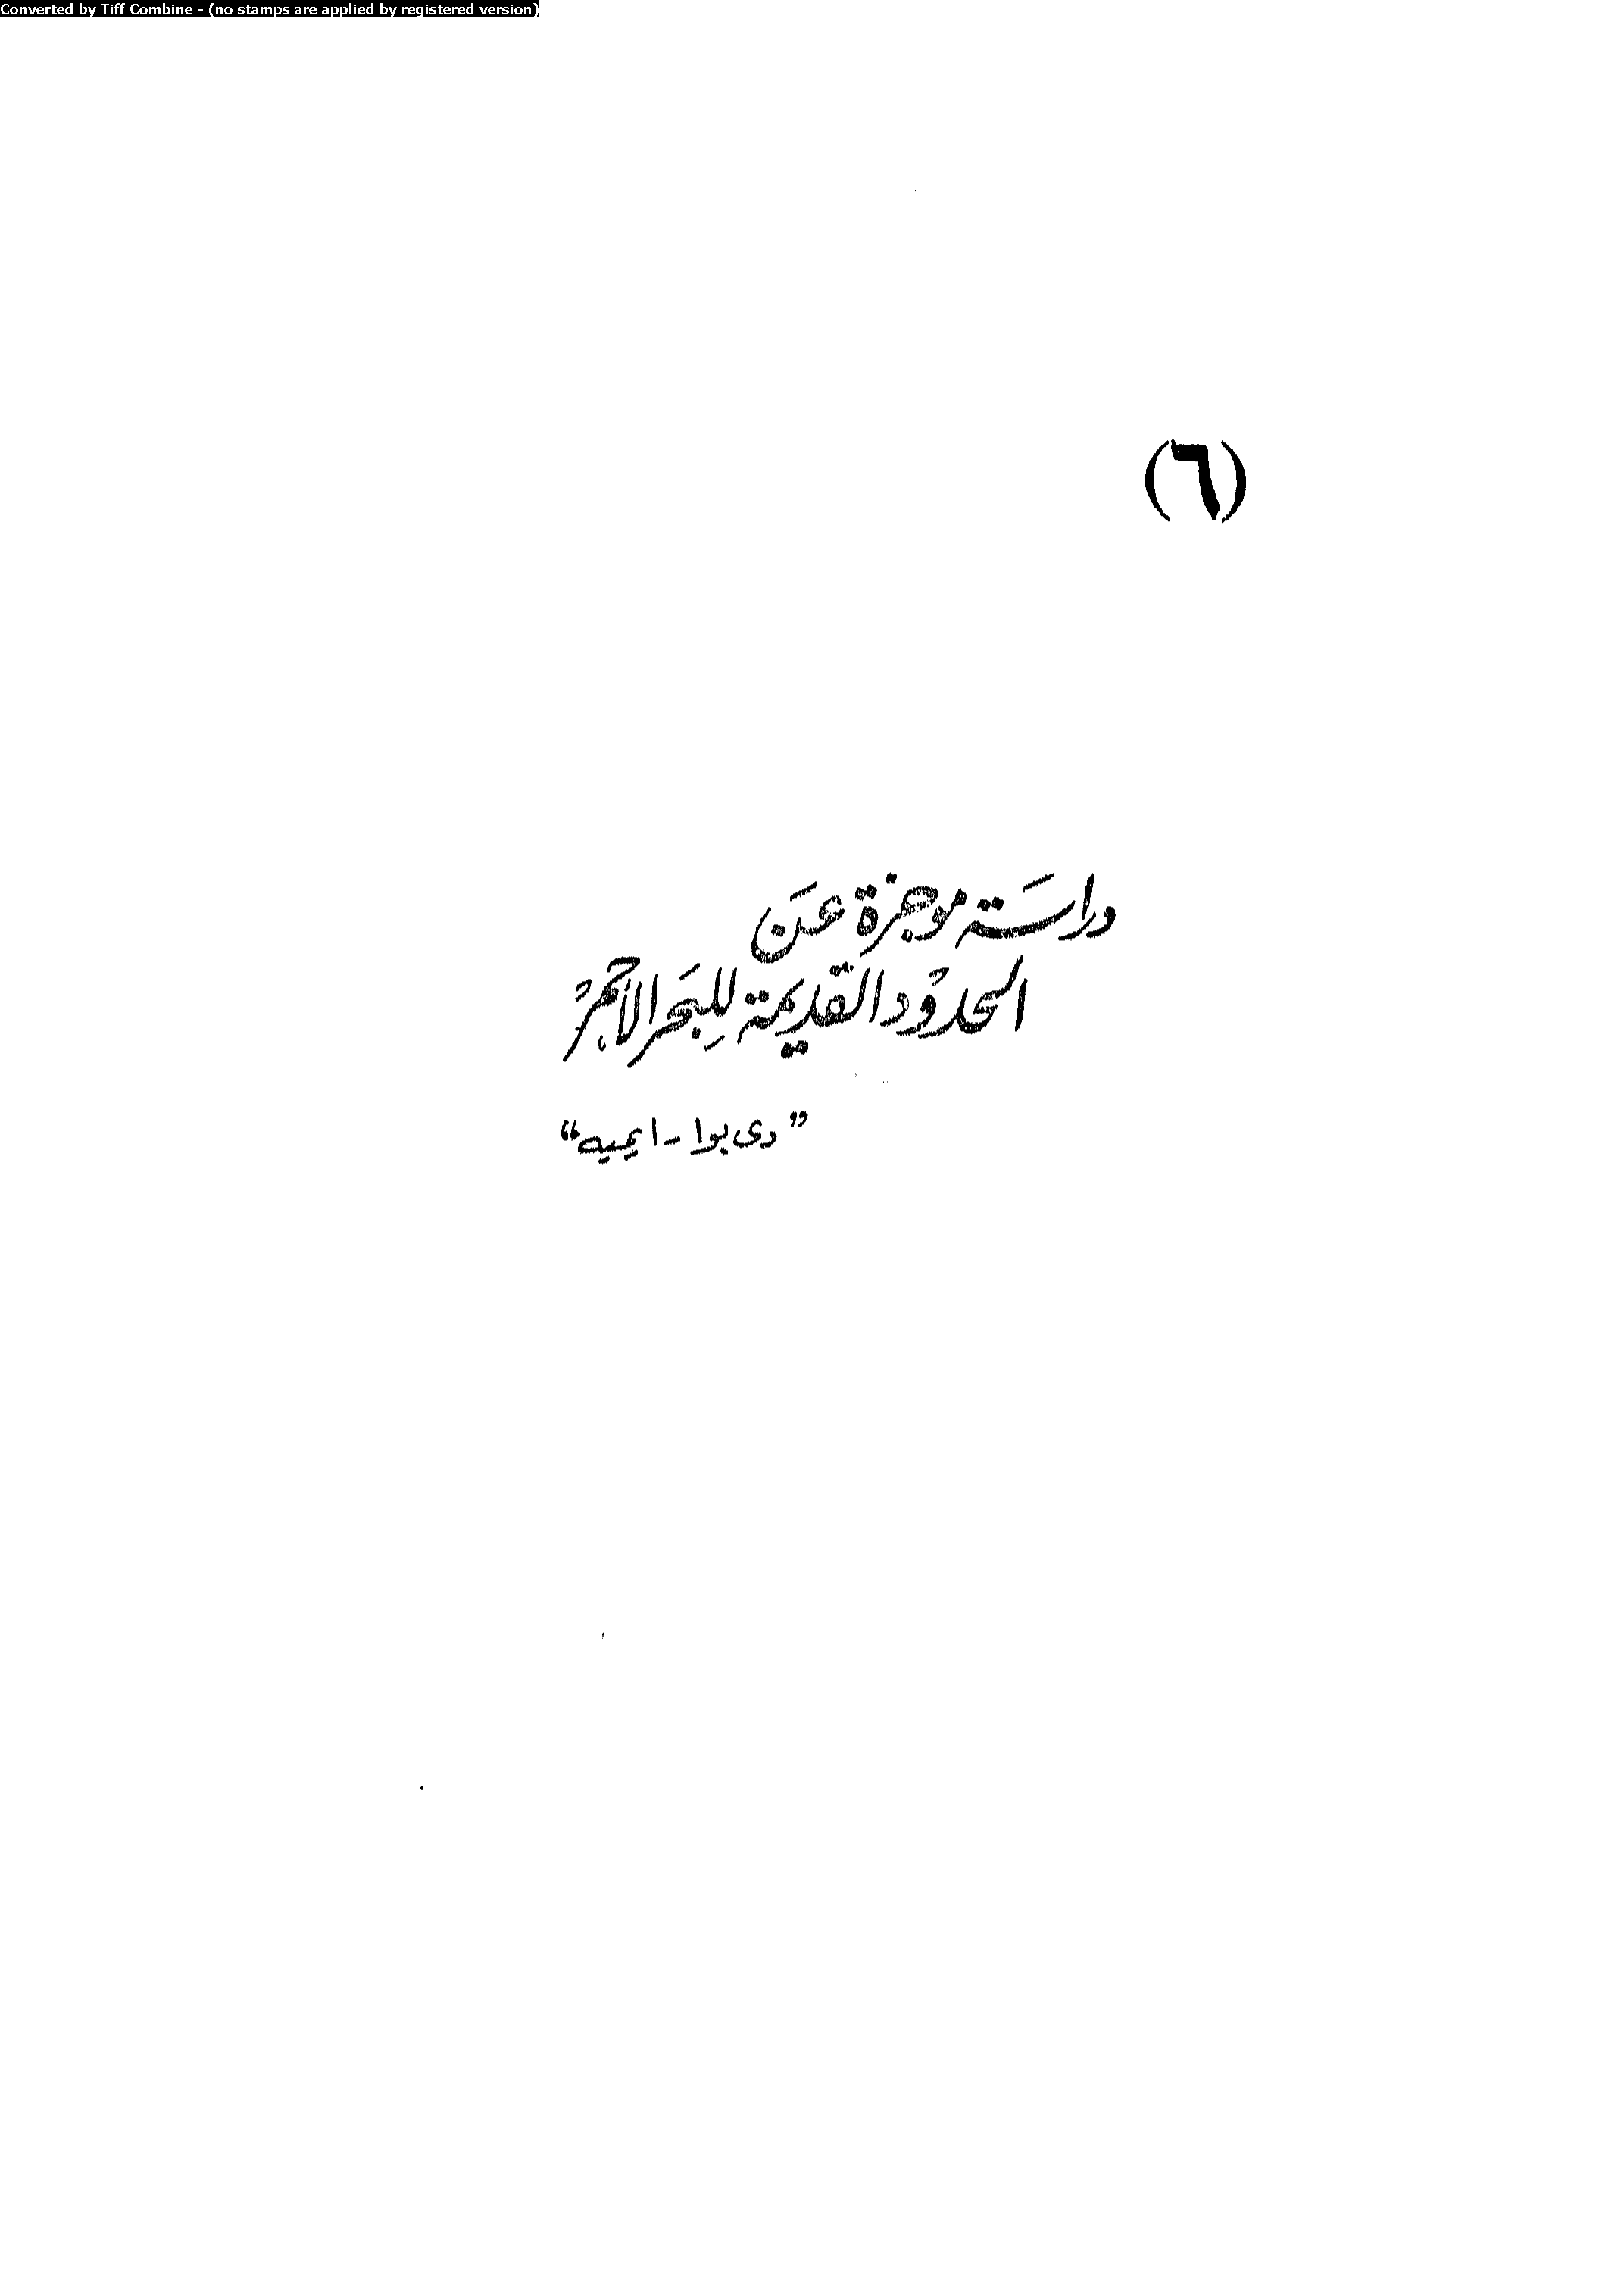 Converted by Tiff Combine - (no stamps are applied by registered version)
(٦)
دراسَة موجزة عَن
الحدوُد القديمة للِبَحر الأحمرُ
”دى بوا - ايميه“